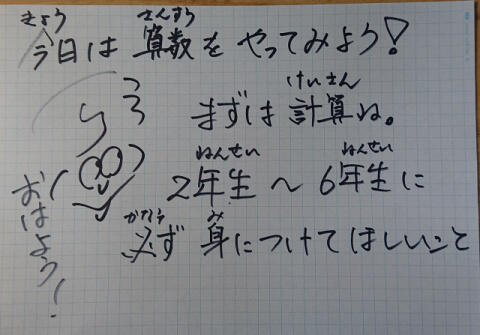 きょう さんすう
今日は算数をやってみよう!
けいさん
まずは計算ね。
ねんせい ねんせい
2年生〜6年生に
かなら み
必ず身につけてほしいこと
おはよう!